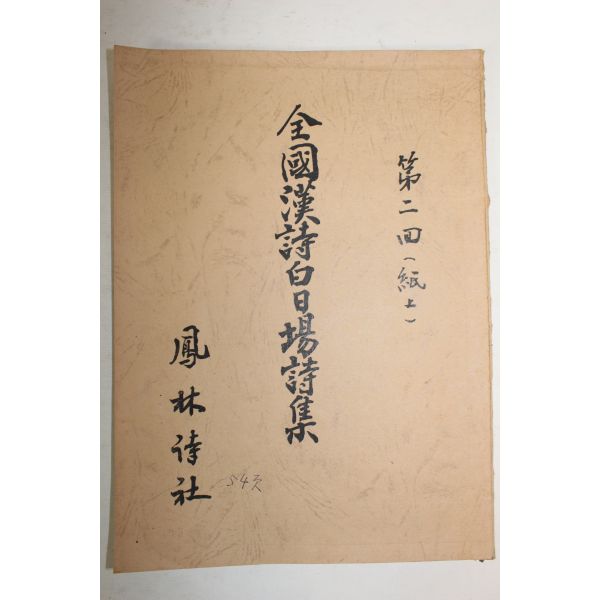 第二回（紙上）
全國漢詩白日場詩集
鳳林詩社
54页